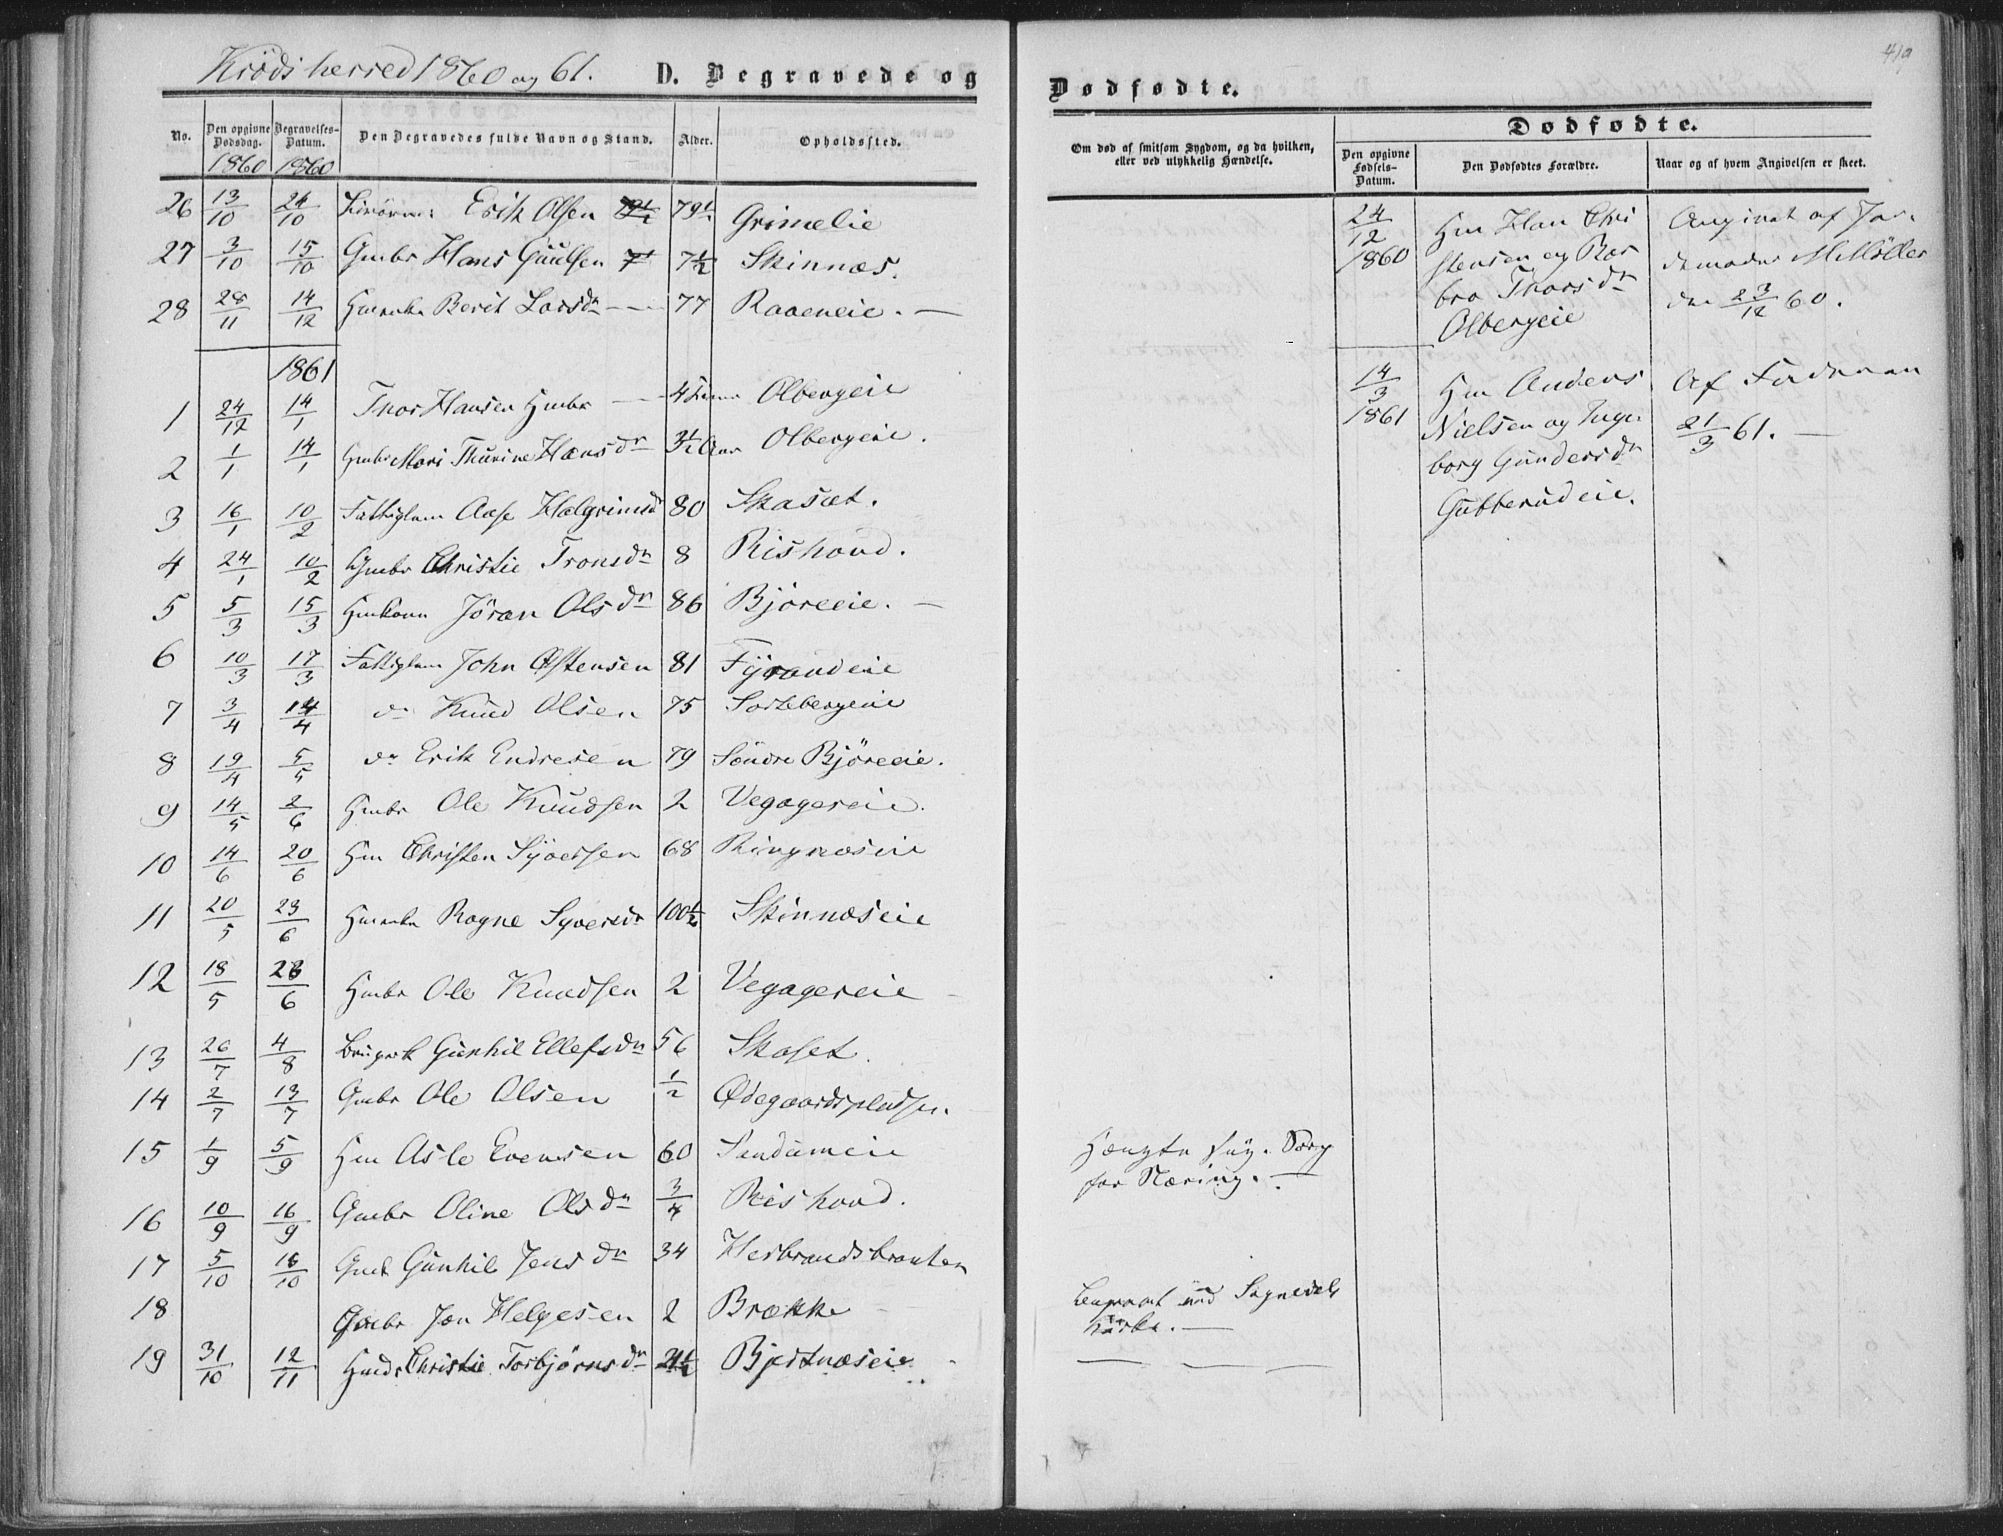 Krødsherred 1860 og 61. D. Begravede og
No. Den opgivne Dødsdag. Begravelses-Datum. Den Begravedes fulde Navn og Stand. Alder. Opholdssted.
1860 1860
26 13/10 24/10 Erik Olsen 79½ Grimelie
27 3/10 15/10 Gmbr Hans Guulsen 7½ Skinnæs.
28 28/11 14/12 Hmenke Berit Larsdr 77 Raaeneie. —
1861
1 24/12 14/1 Thor Hansen Hmbr 4 Olbergeie
2 1/1 14/1 Hmbr Mari Thurine Hansdr 3½ Aar Olbergeie.
3 16/1 10/2 Fattiglem Aase Halgrimsd 80 Skasæt.
4 24/1 10/2 Gmbr Christie Tronsdr 8 Rishovd.
5 5/3 15/3 Hmkone Jöran Olsdr 86 Björeeie. —
6 10/3 17/3 Fattiglem John Østensen 81 Fyrandeie
7 3/4 14/4 do Knud Olsen 75 Sortebergeie
8 19/4 5/5 do Erik Endresen 79 Söndre Björeeie.
9 14/5 2/6 Hmbr Ole Knudsen 2 Vegagereie.
10 14/6 20/6 Hm Christen Syversen 68 Ringnæseie
11 20/5 23/6 Hmenke Ragne Syversdr 100½ Skinnæseie
12 18/5 23/6 Hmbr Ole Knudsen 2 Vegagereie
13 26/7 4/8 Gunhil Ellefsdr 56 Skaset.
14 2/7 13/7 Gmbr Ole Olsen ½ Ødegaardspladsen.
15 1/9 5/9 Hm Asle Evensen 60 Sendumeie
16 10/9 16/9 Gmbr Oline Olsdr 3/4 Rishovd.
17 5/10 16/10 Gunhil Jensdr 34 Herbrandsbraaten
18 Gmbr Jon Helgesen 2 Brække
19 31/10 12/11 Christie Torbjörnsdr 21½ Bjertnæseie
Dødfødte.
Om død af smitsom Sygdom, og da hvilken,
eller ved ulykkelig Hændelse.
Dødfødte.
Den opgivne Fødsels-Datum. Den Dødfødtes Forældre. Naar og af hvem Angivelsen er skeet.
24/12 1860
Hm Han Chri
stensen og Bar
bro Thorsdr
Olbergeie
Angivet af Jor-
demoder M. Möller
den 23/12 60.
14/3 1861
Hm Anders
Nielsen og Inge
borg Gundersdr
Gubberudeie.
Af Faderen
21/3 61. —
Hængte sig. Sorg
for Næring. —
Begravet ved Sognedals
Kirke. —